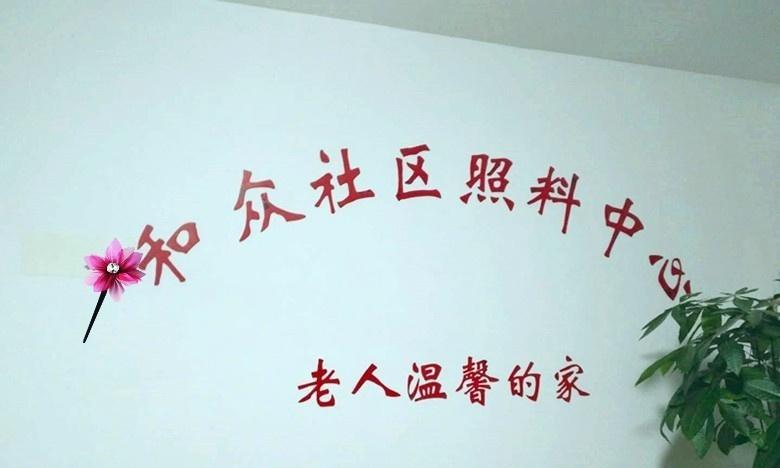 和众社区照料中心
老人温馨的家